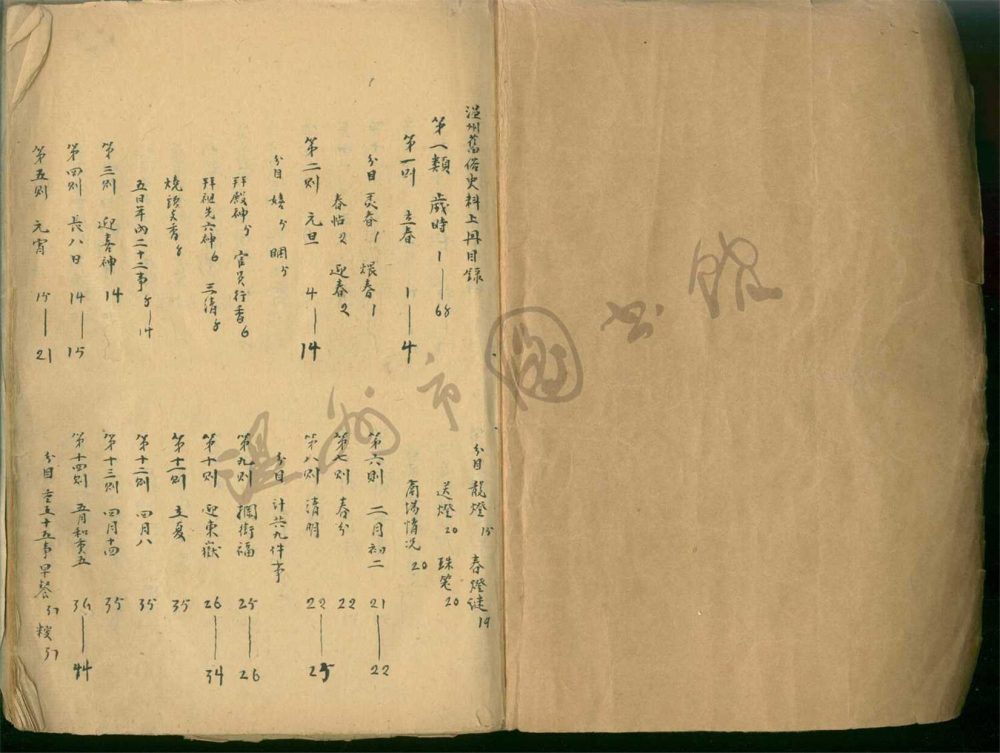 溫州舊俗史料上冊目錄
第一類 歲時 1——68
第一則 立春 1——4
分目 春 1 煨春 1
春帖 2 迎春 2
第二則 元旦 4——14
分目
拜殿神 5 官員行香 6
拜祖先六神 6 三清 8
燒頭香 8
五日年內二十二事 8—14
第三則 迎喜神 14
第四則 長八日 14——15
第五則 元宵 15——21
分目 龍燈 15 春燈謎 19
送燈 20 珠 20
商場情況 20
第六則 二月初二 21——22
第七則 春分 22
第八則 清明 22——25
分目 計共九件事
第九則 攔街福 25——26
第十則 迎東嶽 26——34
第十一則 立夏 35
第十二則 四月八 35
第十三則 四月十四 35
第十四則 五月和重五 36——44
分目 重五十五事早餐 37 粽 37
溫州市圖书館